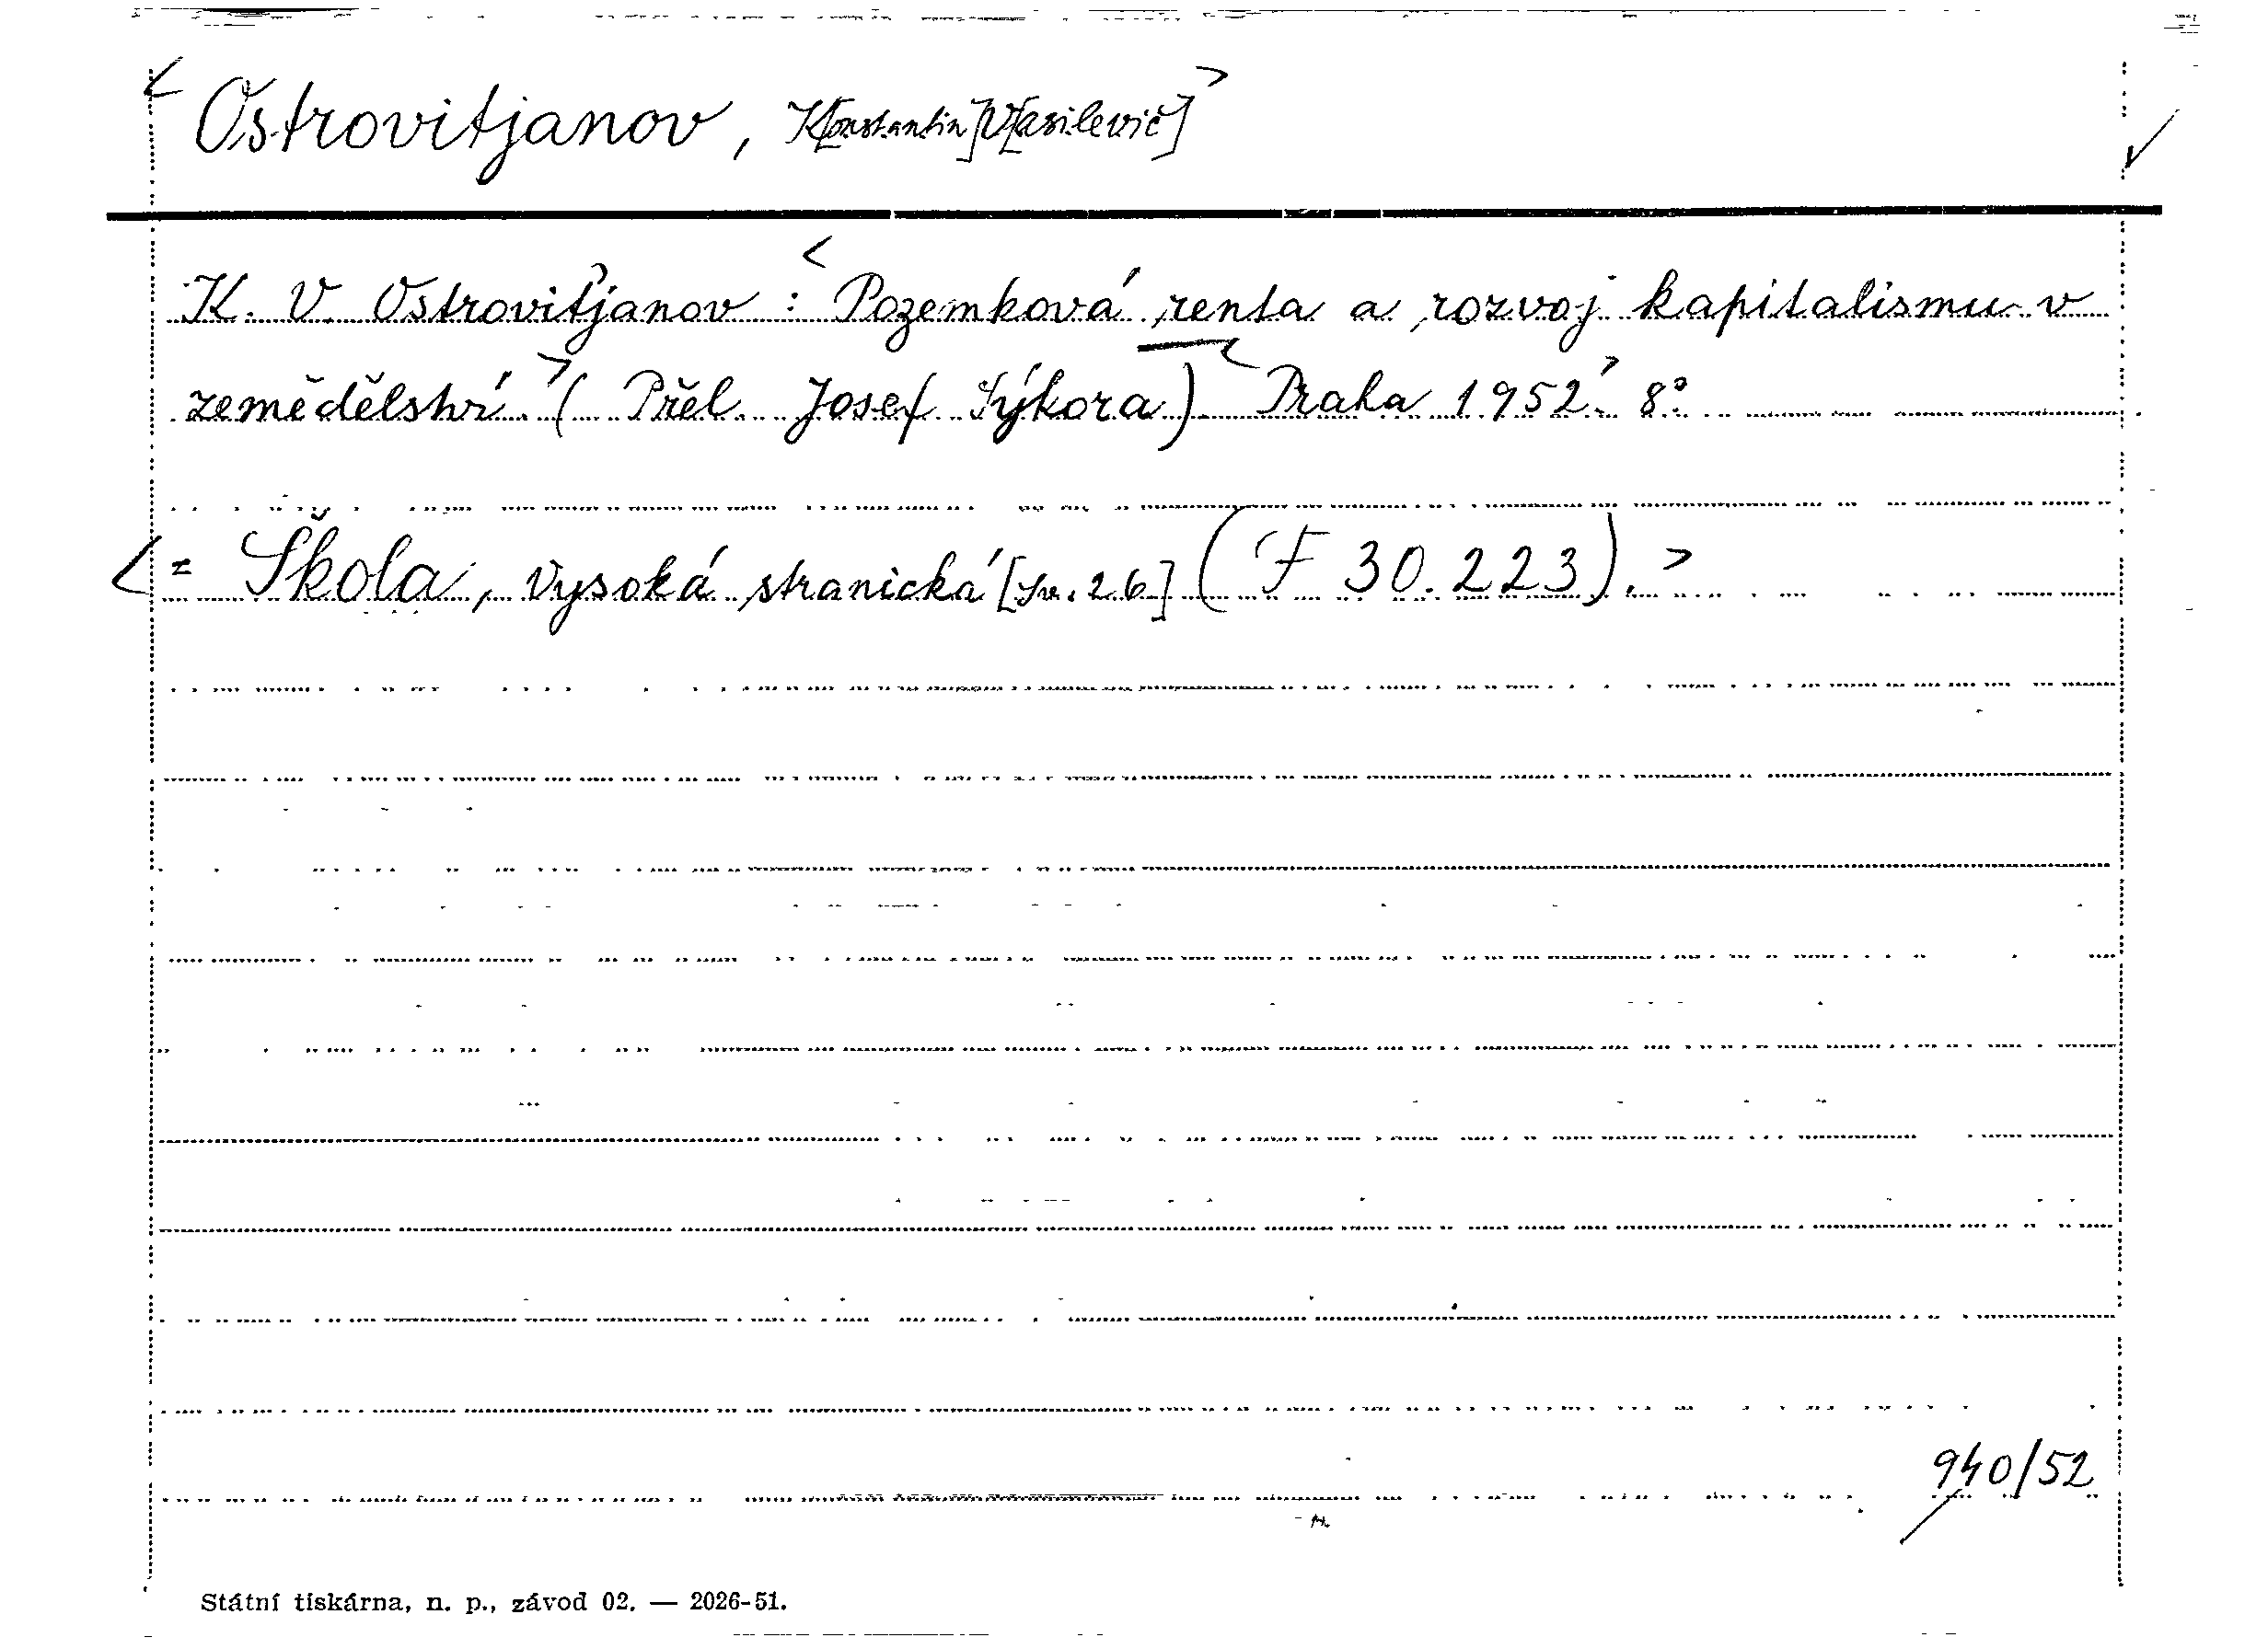 < Ostrovitjanov, K[onstantin] V[asilevič] >
K. V. Ostrovitjanov : < Pozemková renta a rozvoj kapitalismu v
zemědělství. > ( Přel. Josef Sýkora) < Praha 1952. > 8°
< = Škola, Vysoká stranická [Sv. 26] (F 30.223). >
940/52
Státní tiskárna, n. p., závod 02. — 2026-51.